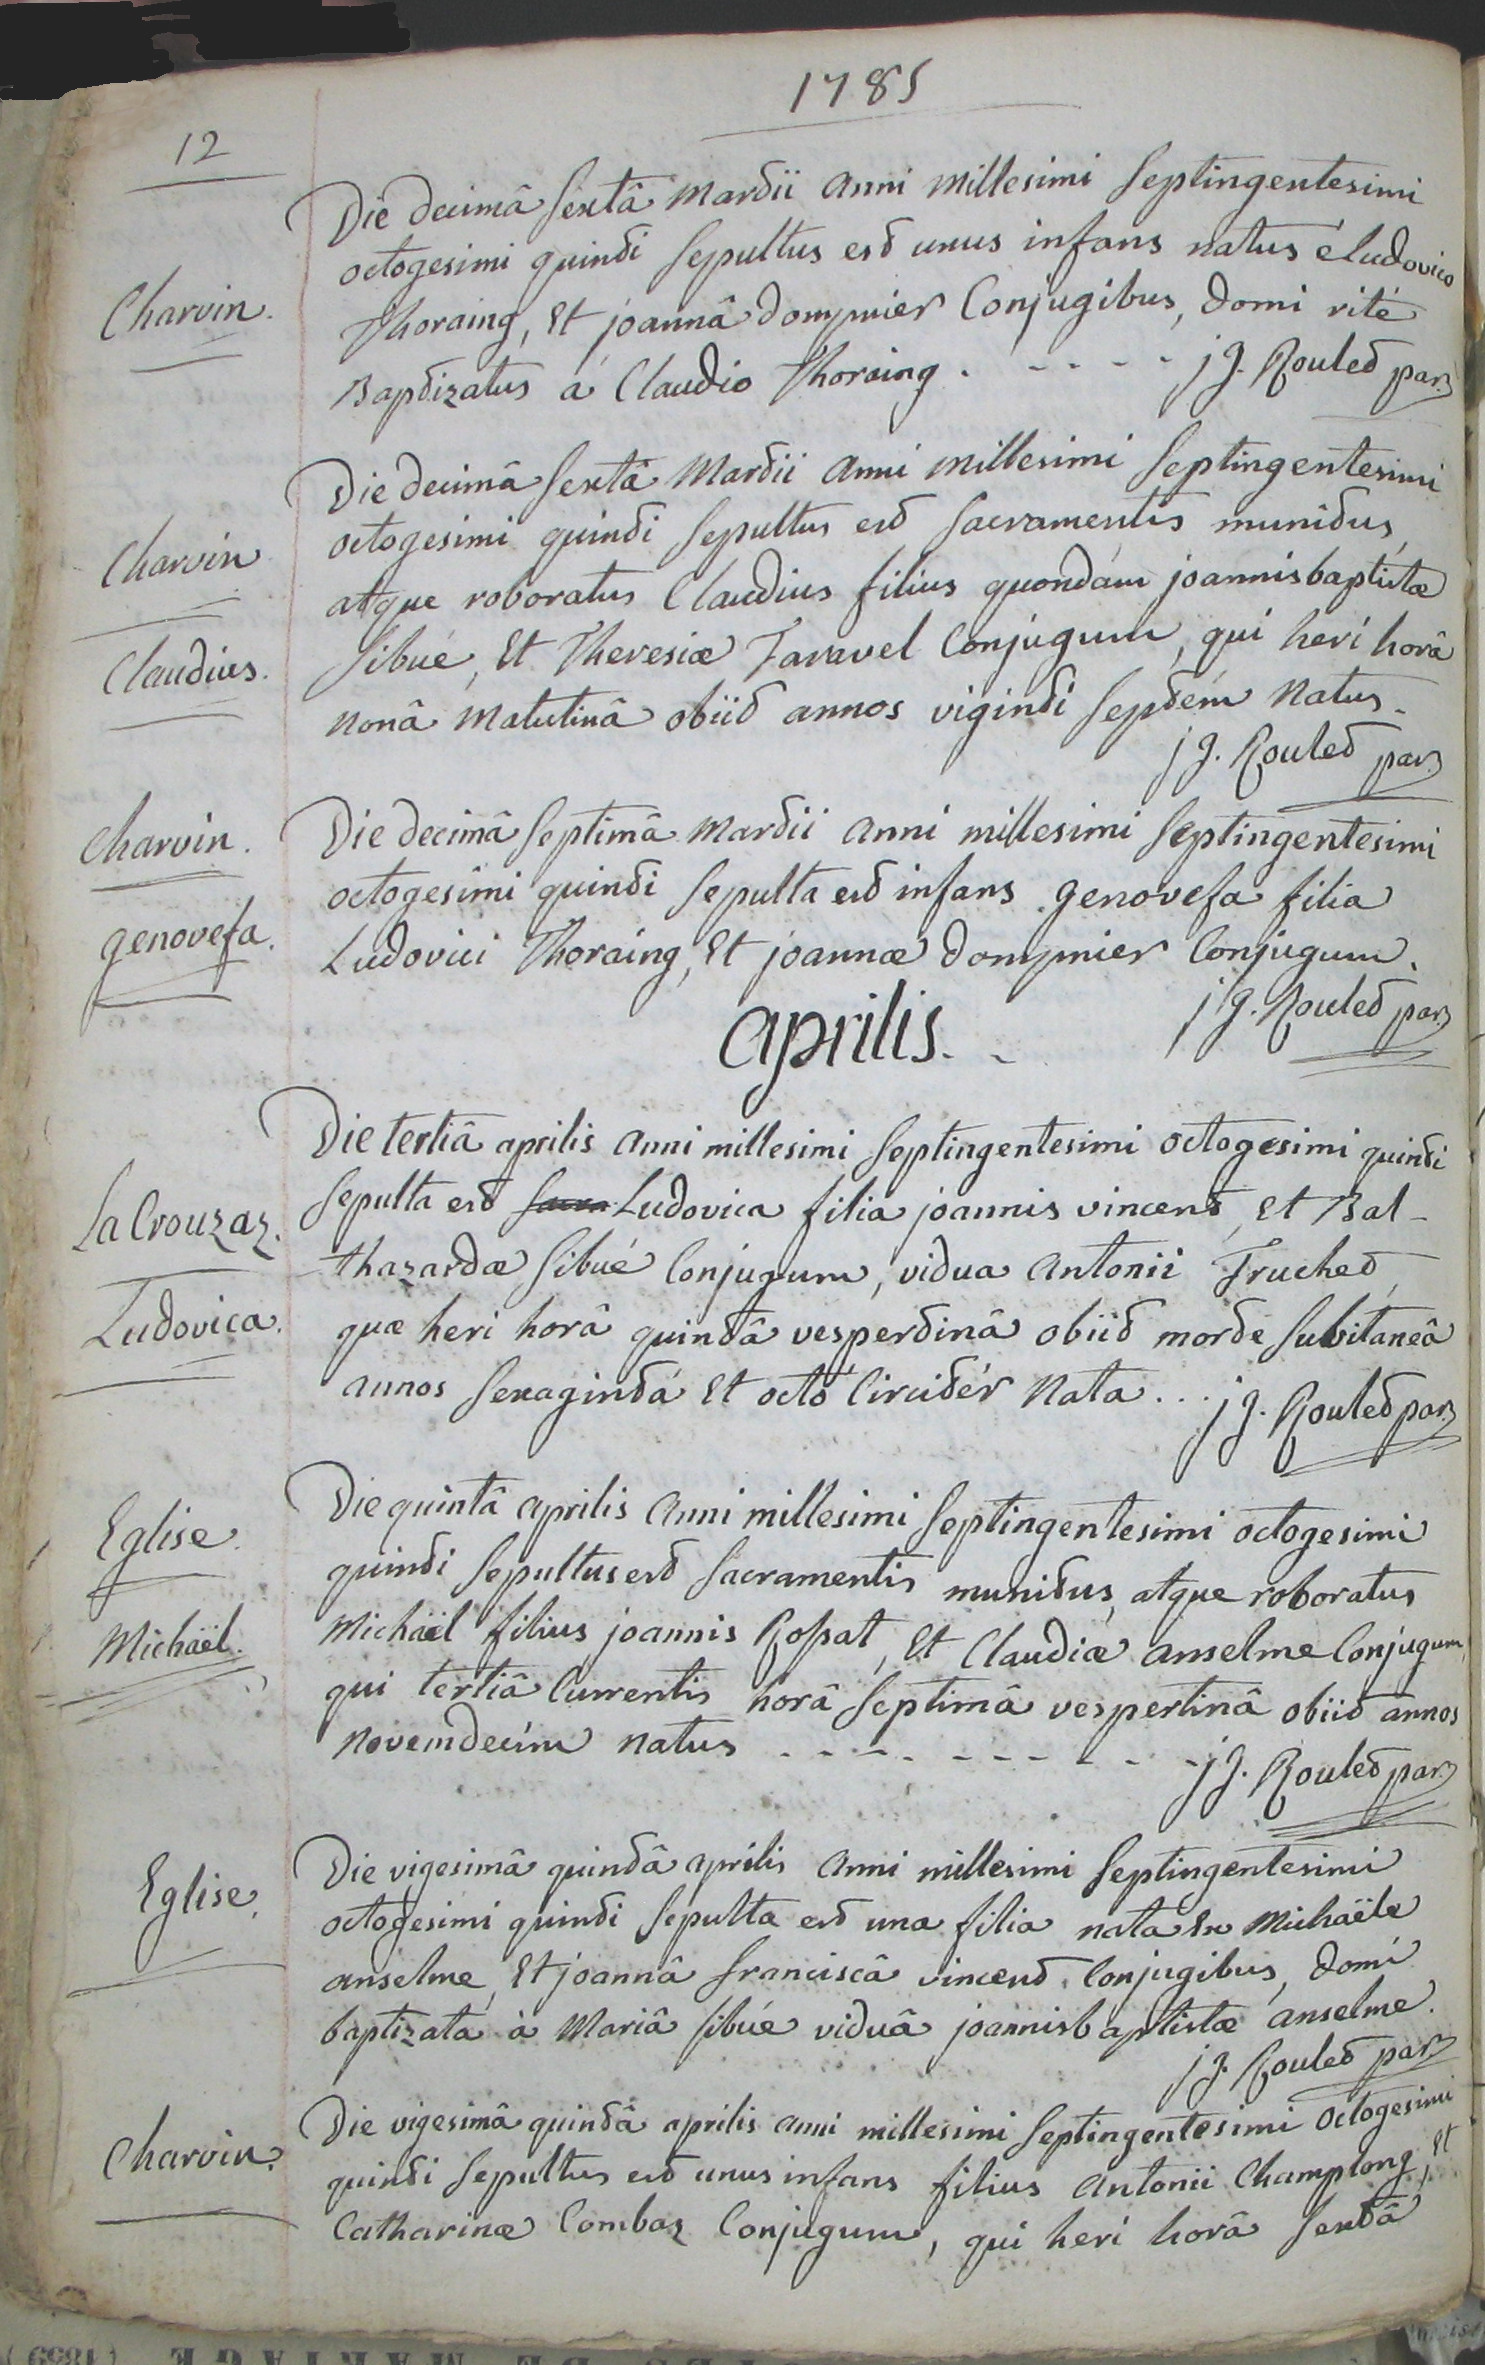 1785
12
Die decimâ sextâ Martii anni millesimi septingentesimi
octogesimi quinti sepultus est unus infans natus é ludovico
Charvin.
Thoraing, Et joannâ dompnier Conjugibus, domi rité
Baptizatus á Claudio Thoraing . - - - - j J. Roulet par.
Die decimâ sextâ Martii anni millesimi septingentesimi
octogesimi quinti sepultus est sacramentis munitus,
Charvin
atque roboratus Claudius filius quondám joannisbaptistæ
Claudius.
sibué, Et Theresiæ Taravel Conjugum, qui heri horâ
nonâ matutinâ obiit annos viginti septém natus.
j J. Roulet par.
Charvin.
Die decimâ septimâ Martii anni millesimi septingentesimi
octogesimi quinti sepulta est infans genovefa filia
genovefa.
Ludovici Thoraing, Et joannæ dompnier Conjugum.
j J. Roulet par.
aprilis.
Die tertiâ aprilis anni millesimi septingentesimi octogesimi quinti
La Crouzaz.
sepulta est Ludovica filia joannis vincent, Et Bal-
thazardæ sibué Conjugum, vidua antonii Truchet,
Ludovica.
quæ heri horâ quintâ vespertinâ obiit morte subitaneâ
annos sexagintá Et octó Circitér nata . . . j J. Roulet par.
Die quintâ aprilis anni millesimi septingentesimi octogesimi
Eglise
quinti sepultus est sacramentis munitus, atque roboratus
Michaël.
Michaël filius joannis Rossat, Et Claudiæ anselme Conjugum,
qui tertiâ Currentis horâ septimâ vespertinâ obiit annos
novemdecim natus - - - - - - - - - j J. Roulet par.
Die vigesimâ quintâ aprilis anni millesimi septingentesimi
Eglise,
octogesimi quinti sepulta est una filia nata Ex Michaële
anselme, Et joannâ franciscâ vincent Conjugibus, domi
baptizata à Mariâ sibúe viduâ joannisbaptistæ anselme.
j J. Roulet par.
Die vigesimâ quintâ aprilis anni millesimi septingentesimi octogesimi
Charvin.
quinti sepultus est unus infans filius antonii Champlong, Et
Catharinæ Combaz Conjugum, qui heri horâ sextâ